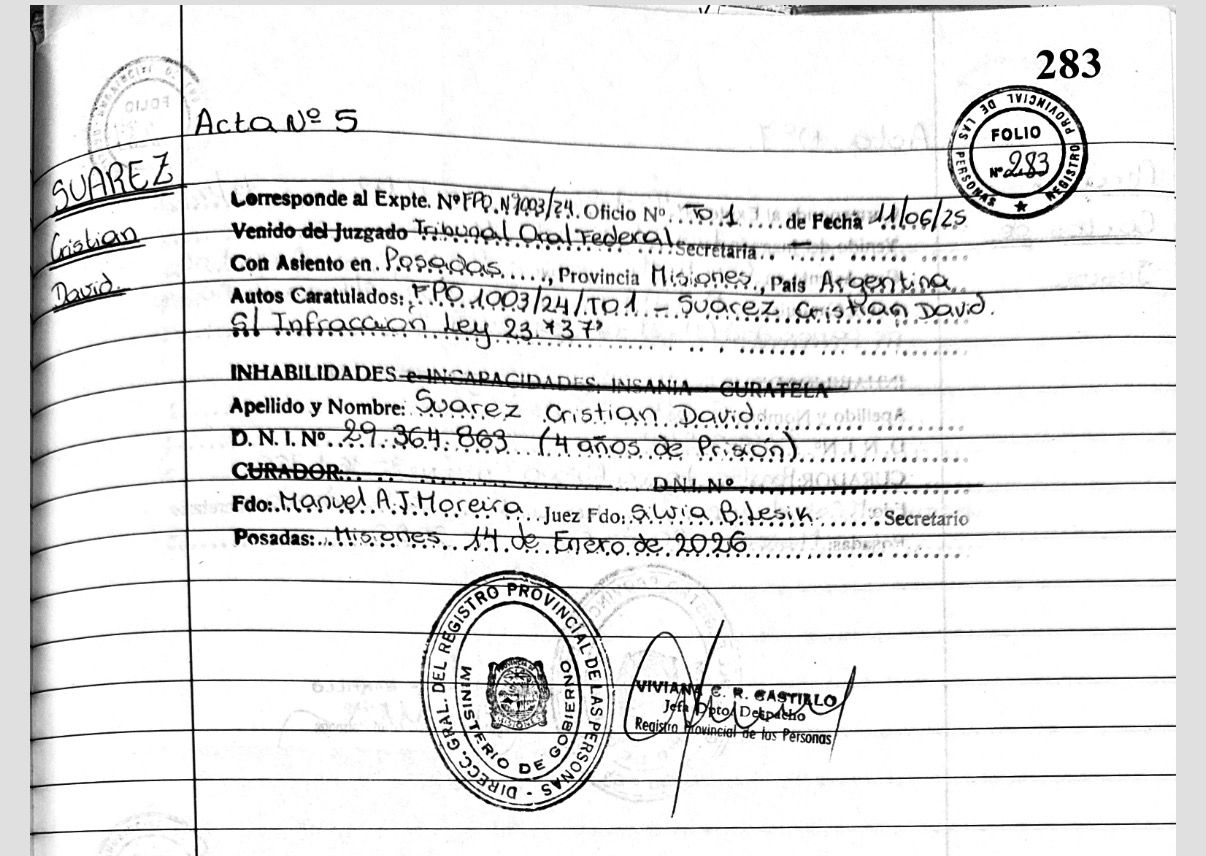 283
REGISTRO PROVINCIAL DE LAS PERSONAS
FOLIO
Nº 283
Acta Nº 5
SUAREZ
Cristian
David.
Corresponde al Expte. Nº FPO. Nº 1003/24. Oficio Nº. TO 1 .... de Fecha 11/06/25
Venido del Juzgado Tribunal Oral Federal Secretaria.. - ..
Con Asiento en. Posadas ....., Provincia Misiones., Pais Argentina
Autos Caratulados: FPO 1003/24/TO1 - Suarez Cristian David.
S/ Infracción Ley 23.737"
INHABILIDADES e INCAPACIDADES, INSANIA - CURATELA
Apellido y Nombre: Suarez Cristian David.
D. N. I. Nº. 29.364.863 (4 años de Prisión)
CURADOR: .. .. D.N.I. Nº
Fdo: Manuel A.J. Moreira Juez Fdo: Silvia B. Lesik ...... Secretario
Posadas: Misiones 14 de Enero de 2026
DIRECC. GRAL. DEL REGISTRO PROVINCIAL DE LAS PERSONAS -
MINISTERIO DE GOBIERNO
VIVIANA C. R. CASTILLO
Jefa Dpto. Despacho
Registro Provincial de las Personas